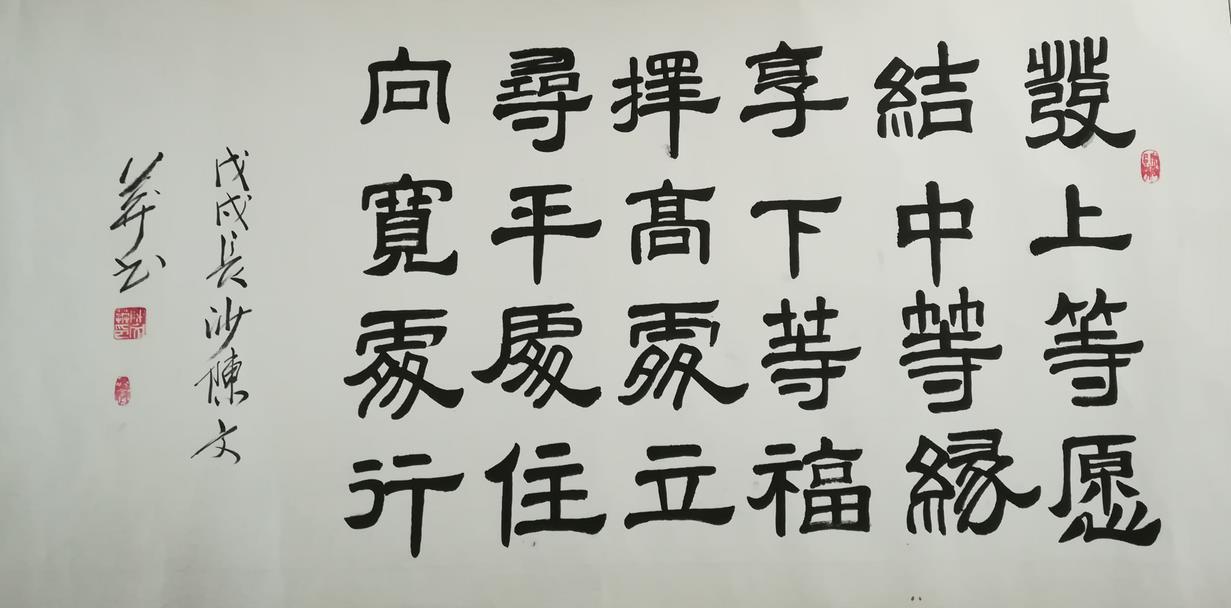 發上等愿
結中等緣
享下等福
擇高處立
尋平處住
向寬處行
戊戌長沙陳文
葬書